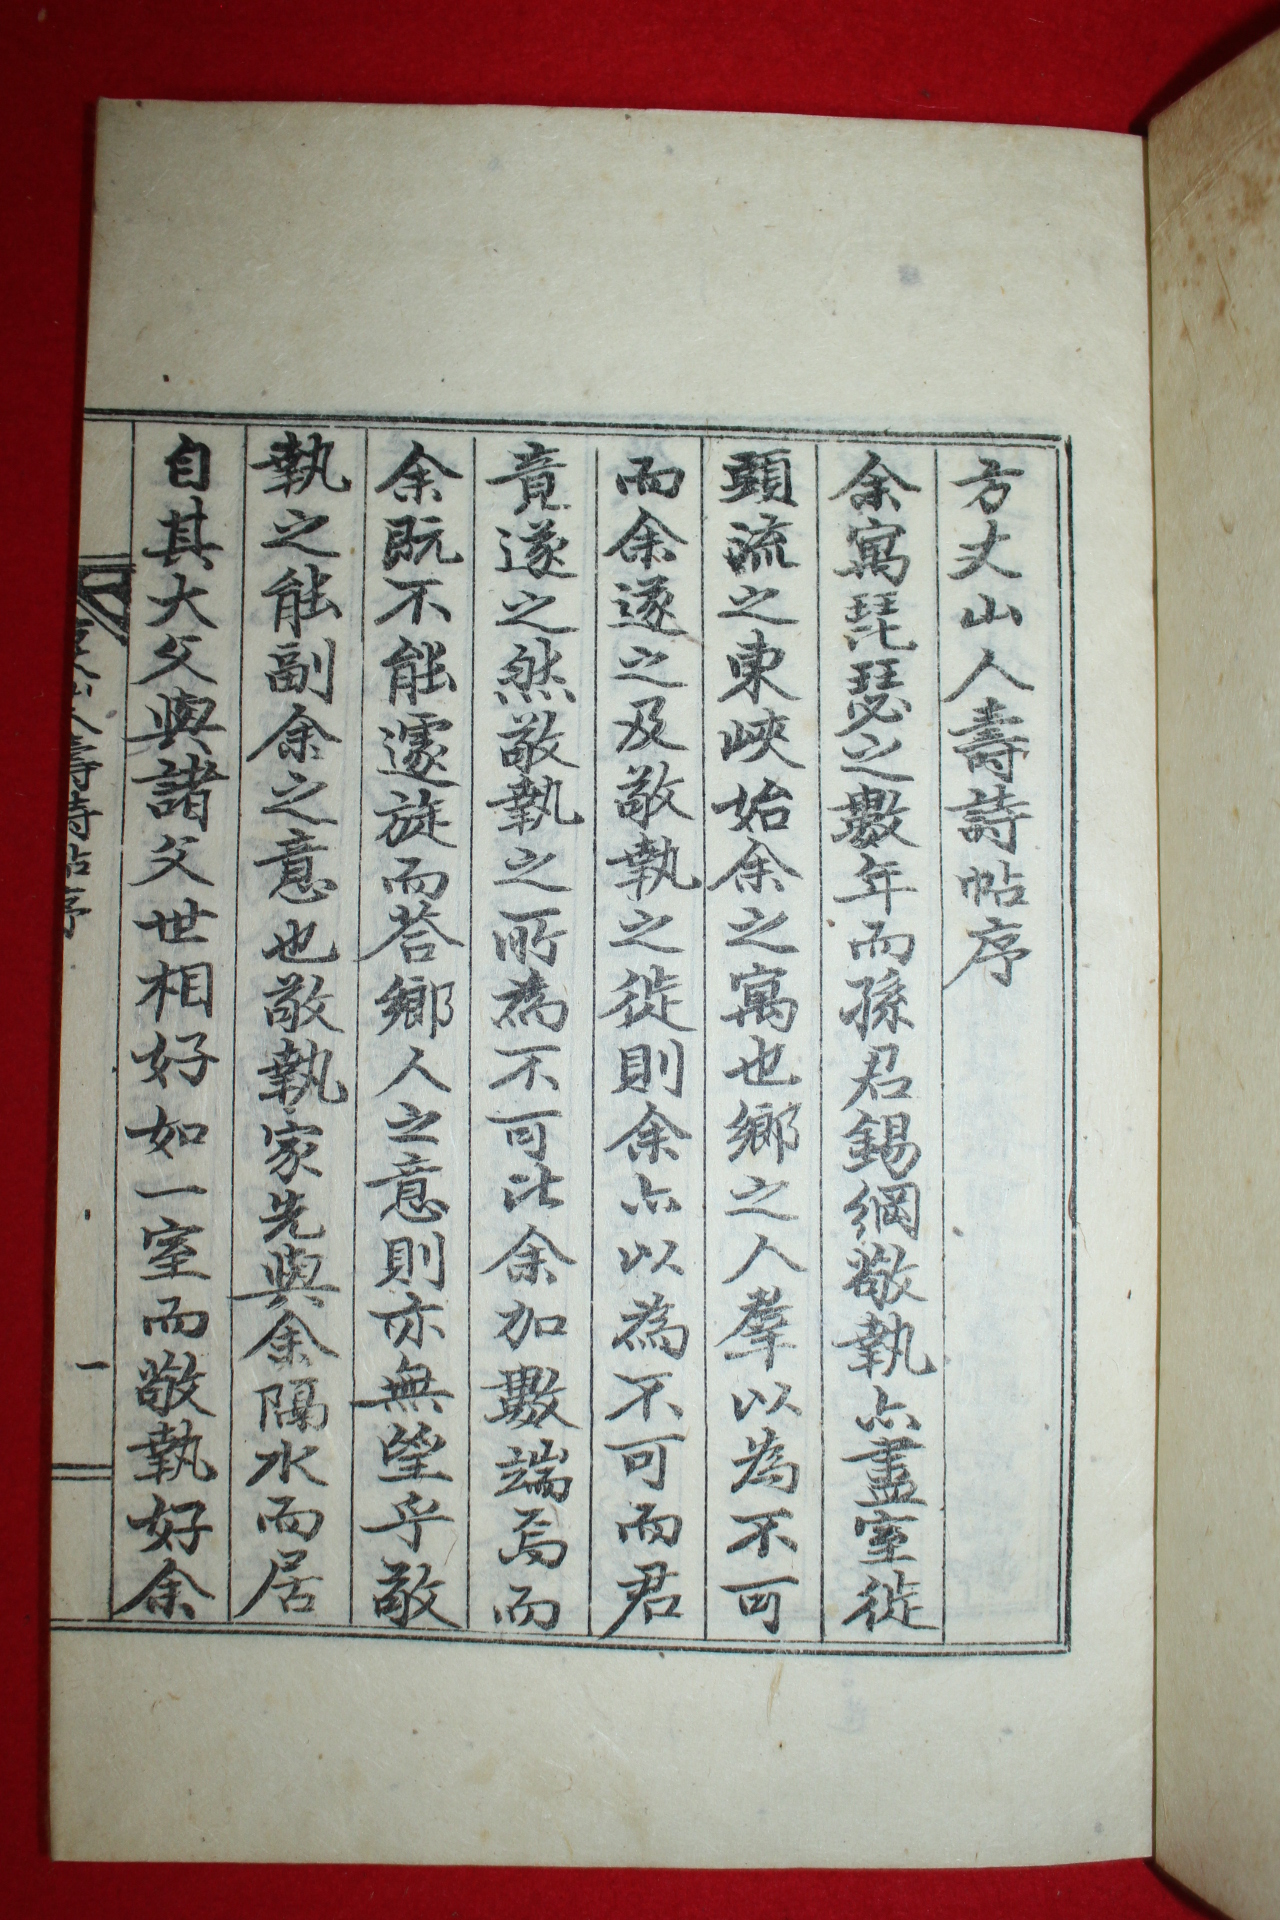 方丈山人壽詩帖序
余寓琵瑟之數年而孫君錫綱敬執亦盡室徙
頭流之東峽始余之寓也鄉之人羣以為不可
而余遂之及敬執之徙則余亦以為不可而君
竟遂之然敬執之所為不可比余加數端焉而
余旣不能遽旋而答鄉人之意則亦無望乎敬
執之能副余之意也敬執家先與余隔水而居
自其大父與諸父世相好如一室而敬執好余
壽詩帖序
一